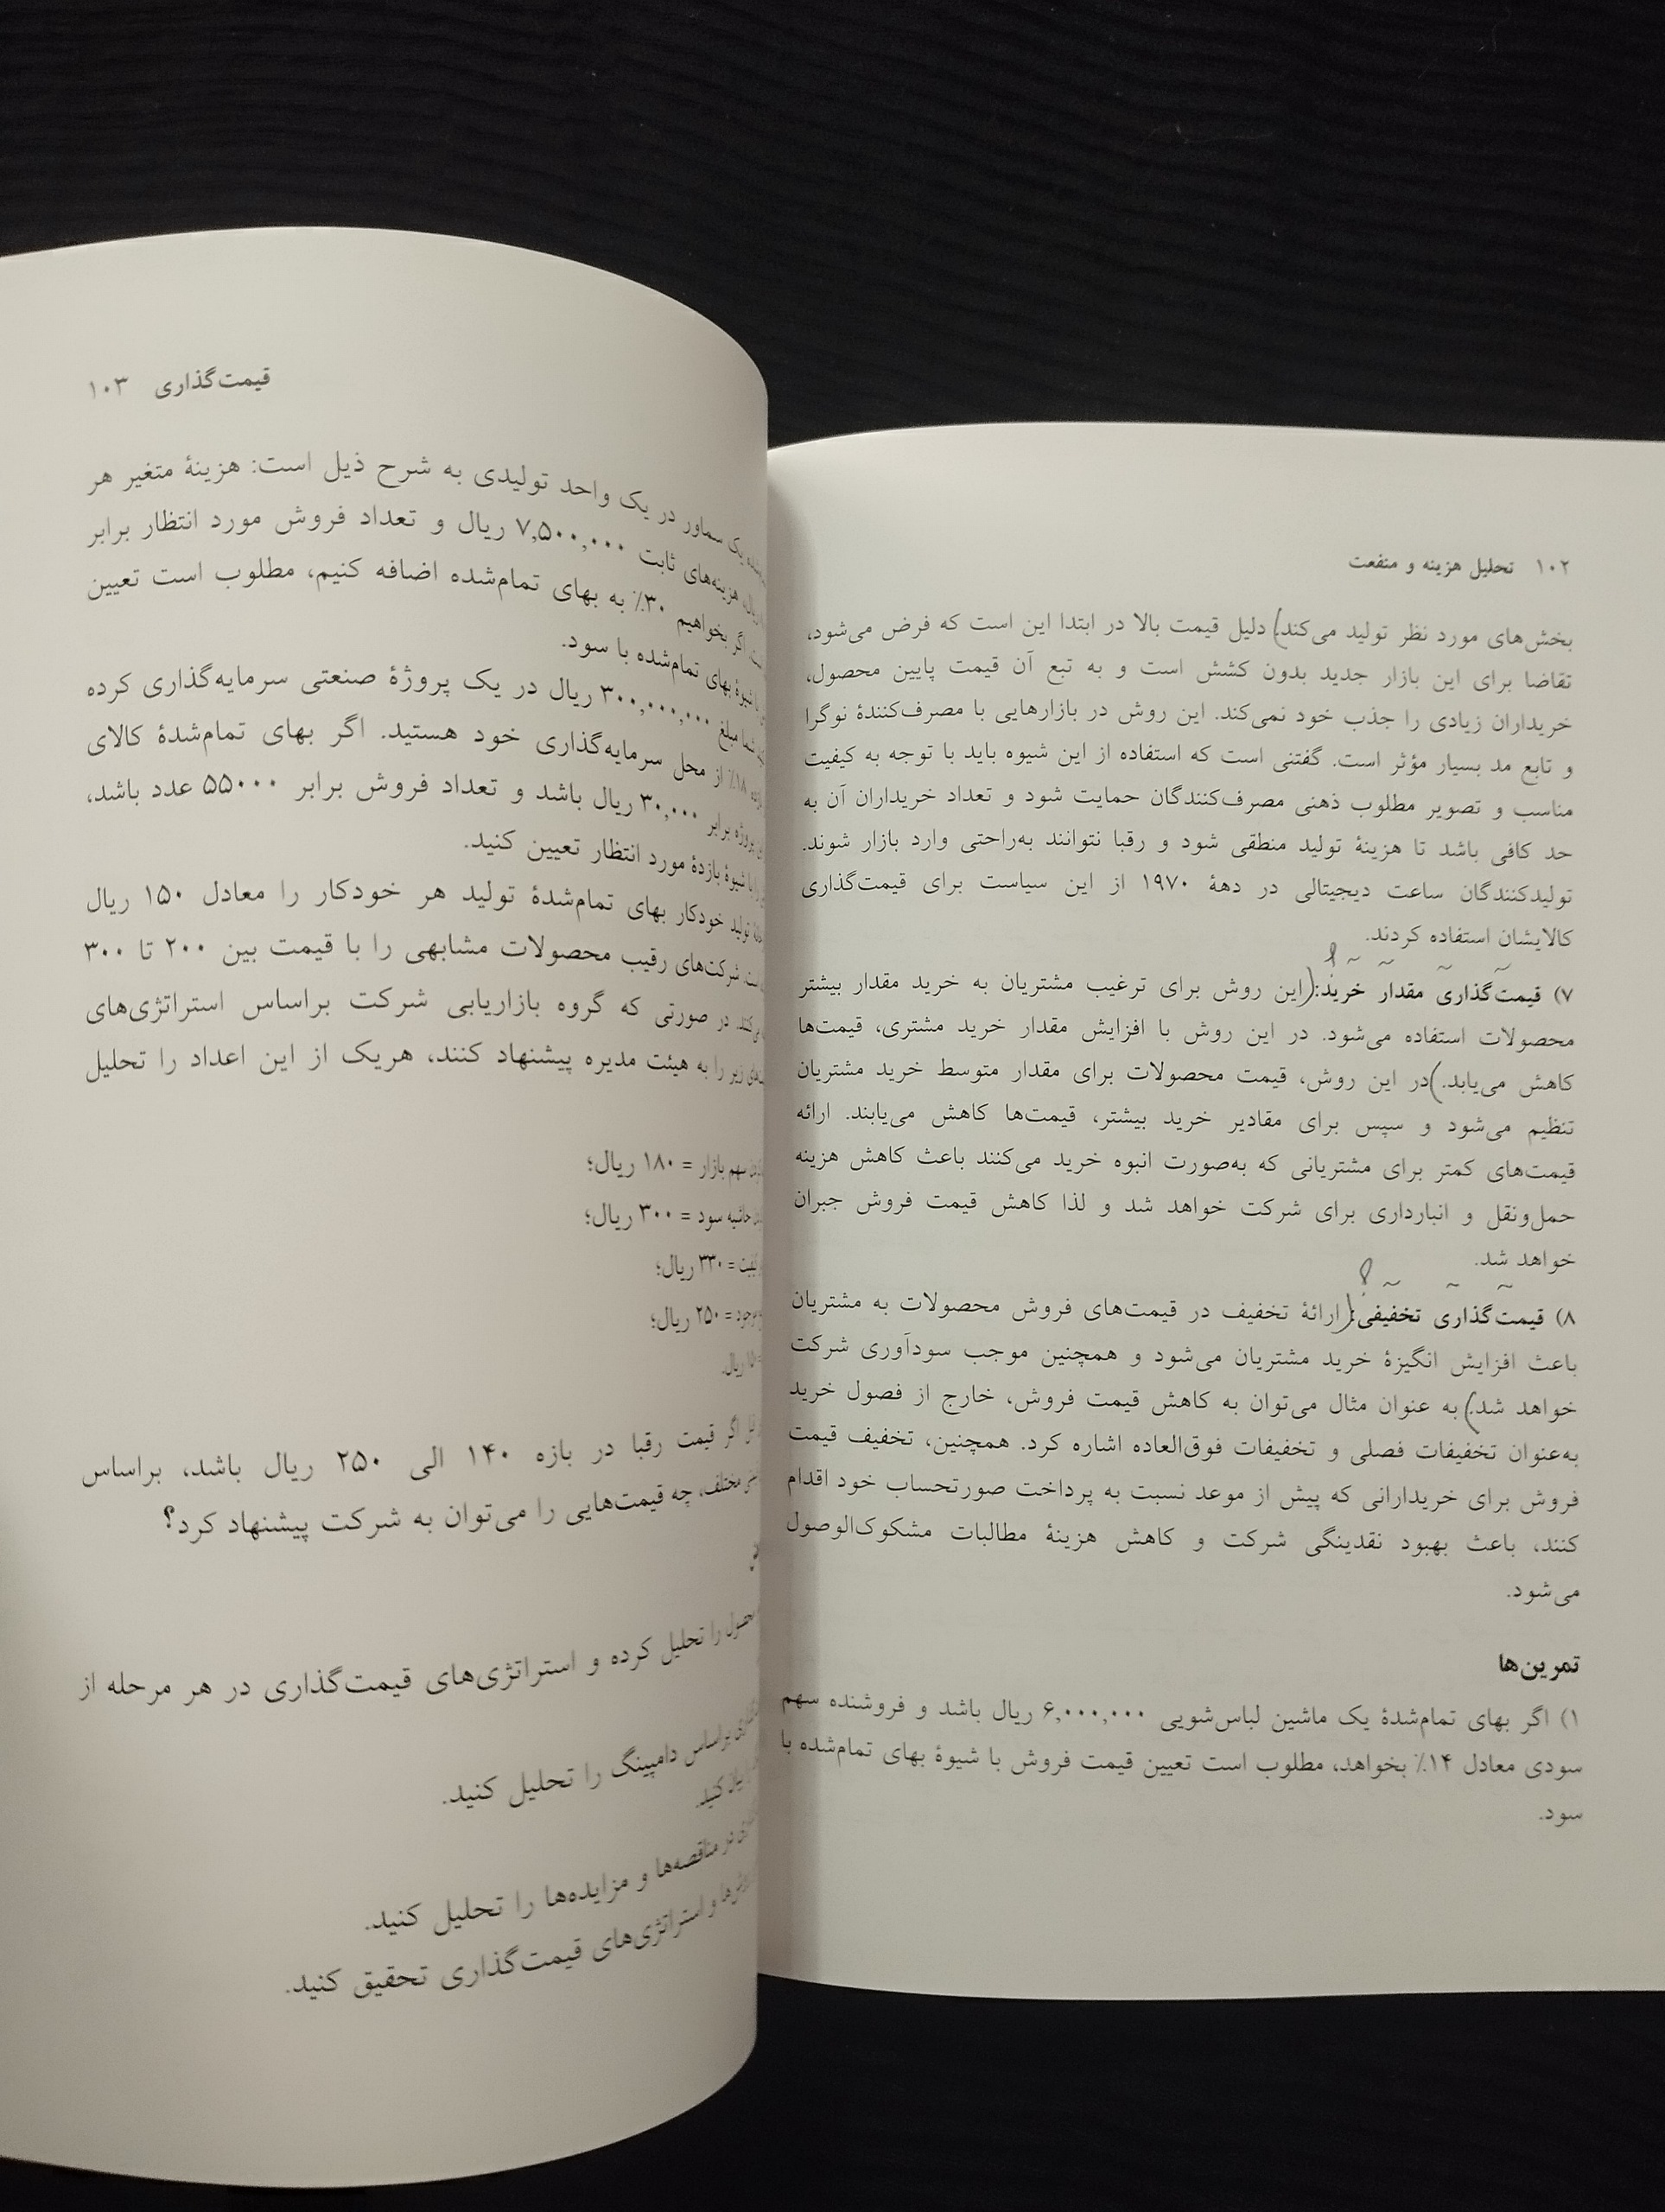 ۱۰۲ تحلیل هزینه و منفعت
بخش‌های مورد نظر تولید می‌کند) دلیل قیمت بالا در ابتدا این است که فرض می‌شود،
تقاضا برای این بازار جدید بدون کشش است و به تبع آن قیمت پایین محصول،
خریداران زیادی را جذب خود نمی‌کند. این روش در بازارهایی با مصرف‌کنندهٔ نوگرا
و تابع مد بسیار مؤثر است. گفتنی است که استفاده از این شیوه باید با توجه به کیفیت
مناسب و تصویر مطلوب ذهنی مصرف‌کنندگان حمایت شود و تعداد خریداران آن به
حد کافی باشد تا هزینهٔ تولید منطقی شود و رقبا نتوانند به‌راحتی وارد بازار شوند.
تولیدکنندگان ساعت دیجیتالی در دههٔ ۱۹۷۰ از این سیاست برای قیمت‌گذاری
کالایشان استفاده کردند.
۷) قیمت‌گذاری مقدار خرید: (این روش برای ترغیب مشتریان به خرید مقدار بیشتر
محصولات استفاده می‌شود. در این روش با افزایش مقدار خرید مشتری، قیمت‌ها
کاهش می‌یابد.) در این روش، قیمت محصولات برای مقدار متوسط خرید مشتریان
تنظیم می‌شود و سپس برای مقادیر خرید بیشتر، قیمت‌ها کاهش می‌یابند. ارائه
قیمت‌های کمتر برای مشتریانی که به‌صورت انبوه خرید می‌کنند باعث کاهش هزینه
حمل‌ونقل و انبارداری برای شرکت خواهد شد و لذا کاهش قیمت فروش جبران
خواهد شد.
۸) قیمت‌گذاری تخفیفی: (ارائهٔ تخفیف در قیمت‌های فروش محصولات به مشتریان
باعث افزایش انگیزهٔ خرید مشتریان می‌شود و همچنین موجب سودآوری شرکت
خواهد شد.) به عنوان مثال می‌توان به کاهش قیمت فروش، خارج از فصول خرید
به‌عنوان تخفیفات فصلی و تخفیفات فوق‌العاده اشاره کرد. همچنین، تخفیف قیمت
فروش برای خریدارانی که پیش از موعد نسبت به پرداخت صورتحساب خود اقدام
کنند، باعث بهبود نقدینگی شرکت و کاهش هزینهٔ مطالبات مشکوک‌الوصول
می‌شود.
تمرین‌ها
۱) اگر بهای تمام‌شدهٔ یک ماشین لباس‌شویی ۶,۰۰۰,۰۰۰ ریال باشد و فروشنده سهم
سودی معادل ۱۴٪ بخواهد، مطلوب است تعیین قیمت فروش با شیوهٔ بهای تمام‌شده با
سود.
قیمت‌گذاری ۱۰۳
یک سماور در یک واحد تولیدی به شرح ذیل است: هزینهٔ متغیر هر
ریال، هزینه‌های ثابت ۷,۵۰۰,۰۰۰ ریال و تعداد فروش مورد انتظار برابر
اگر بخواهیم ۳۰٪ به بهای تمام‌شده اضافه کنیم، مطلوب است تعیین
شیوهٔ بهای تمام‌شده با سود.
شما مبلغ ۳۰۰,۰۰۰,۰۰۰ ریال در یک پروژهٔ صنعتی سرمایه‌گذاری کرده
۱۸٪ از محل سرمایه‌گذاری خود هستید. اگر بهای تمام‌شدهٔ کالای
پروژه برابر ۳۰,۰۰۰ ریال باشد و تعداد فروش برابر ۵۵۰۰۰ عدد باشد،
با شیوهٔ بازدهٔ مورد انتظار تعیین کنید.
تولید خودکار بهای تمام‌شدهٔ تولید هر خودکار را معادل ۱۵۰ ریال
است. شرکت‌های رقیب محصولات مشابهی را با قیمت بین ۲۰۰ تا ۳۰۰
در صورتی که گروه بازاریابی شرکت براساس استراتژی‌های
زیر را به هیئت مدیره پیشنهاد کنند، هریک از این اعداد را تحلیل
سهم بازار = ۱۸۰ ریال؛
حاشیه سود = ۳۰۰ ریال؛
= ۳۳۰ ریال؛
= ۲۵۰ ریال؛
ریال.
اگر قیمت رقبا در بازه ۱۴۰ الی ۲۵۰ ریال باشد، براساس
مختلف، چه قیمت‌هایی را می‌توان به شرکت پیشنهاد کرد؟
محصول را تحلیل کرده و استراتژی‌های قیمت‌گذاری در هر مرحله از
براساس دامپینگ را تحلیل کنید.
کنید.
در مناقصه‌ها و مزایده‌ها را تحلیل کنید.
و استراتژی‌های قیمت‌گذاری تحقیق کنید.